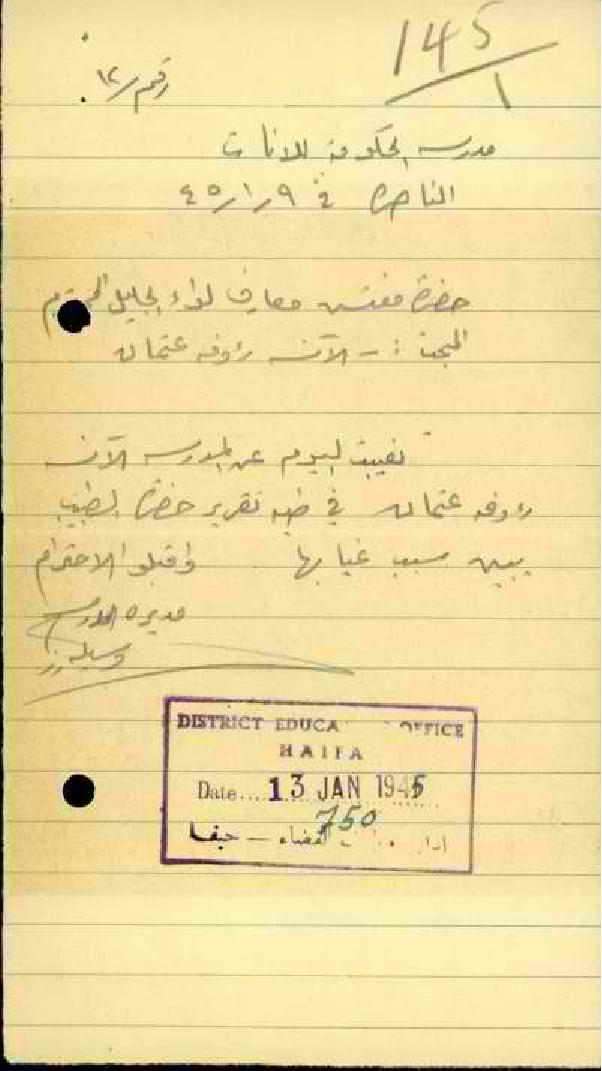 145/1
رقم / ١٢
مدرسة الحكومة للاناث
الناصرة في ٩ / ١ / ٤٥
حضرة مفتش معارف لواء الجليل المحترم
المبحث :- الآنسه رؤوفه عثمان
تغيبت اليوم عن المدرسه الآنسه
رؤوفه عثمان في طيه تقرير حضرة الطبيب
يبين سبب غيابها واقبلوا الاحترام
مديرة المدرسه
DISTRICT EDUCA OFFICE
HAIFA
Date.... 13 JAN 1945
750
القضاء — حيفا